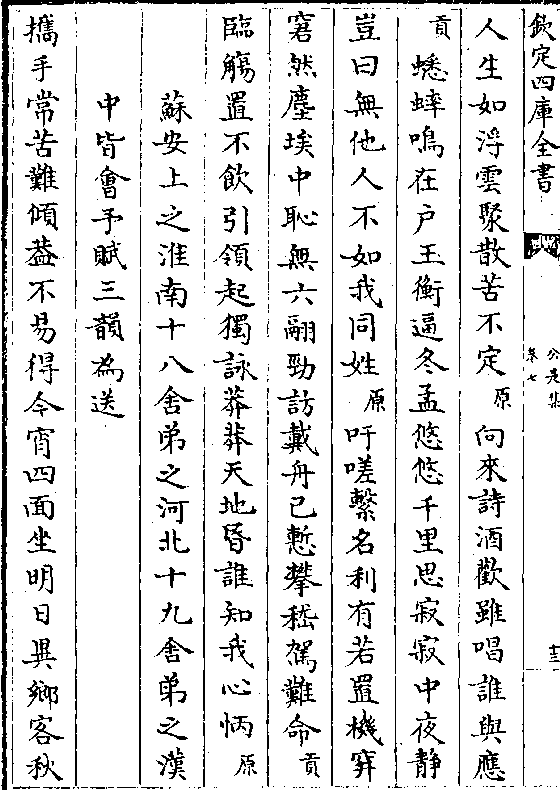 欽定四庫全書
公是集
卷七
十三
人生如浮雲聚散苦不定原向來詩酒歡雖唱誰與應
貢蟋蟀鳴在戶玉衡逼冬孟悠悠千里思寂寂中夜静
豈曰無他人不如我同姓原吁嗟繫名利有若置機穽
窘然塵埃中恥無六翮勁訪戴舟已慙攀嵇駕難命貢
臨觴置不飲引領起獨詠莽莽天地昏誰知我心怲原
蘇安上之淮南十八舍弟之河北十九舍弟之漢
中皆會予賦三韻為送
攜手常苦難傾葢不易得今宵四面坐明日異鄉客秋